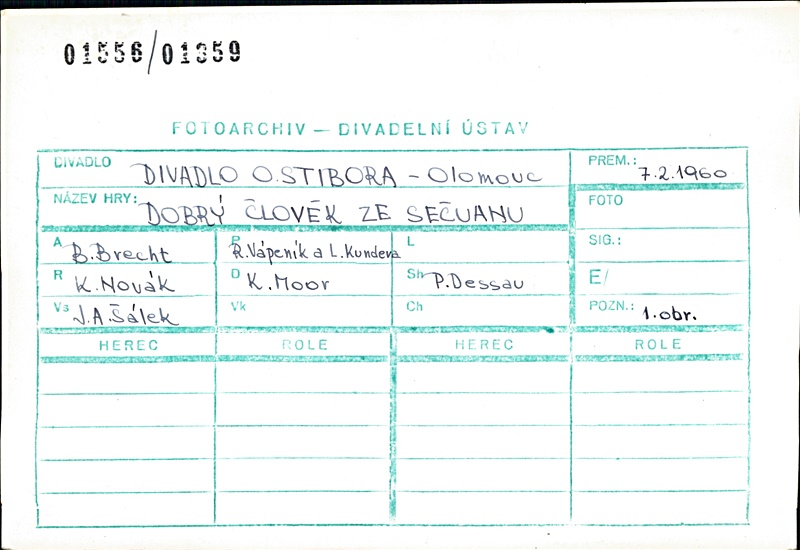 01556/01359
FOTOARCHIV — DIVADELNÍ ÚSTAV
DIVADLO DIVADLO O.STIBORA - Olomouc PREM.: 7.2.1960
NÁZEV HRY: DOBRÝ ČLOVĚK ZE SEČUANU FOTO
A B.Brecht P R.Vápeník a L.Kundera L SIG.:
R K.Novák D K.Moor Sh P.Dessau E/
Vs J.A.Šálek Vk Ch POZN.: 1.obr.
HEREC ROLE HEREC ROLE